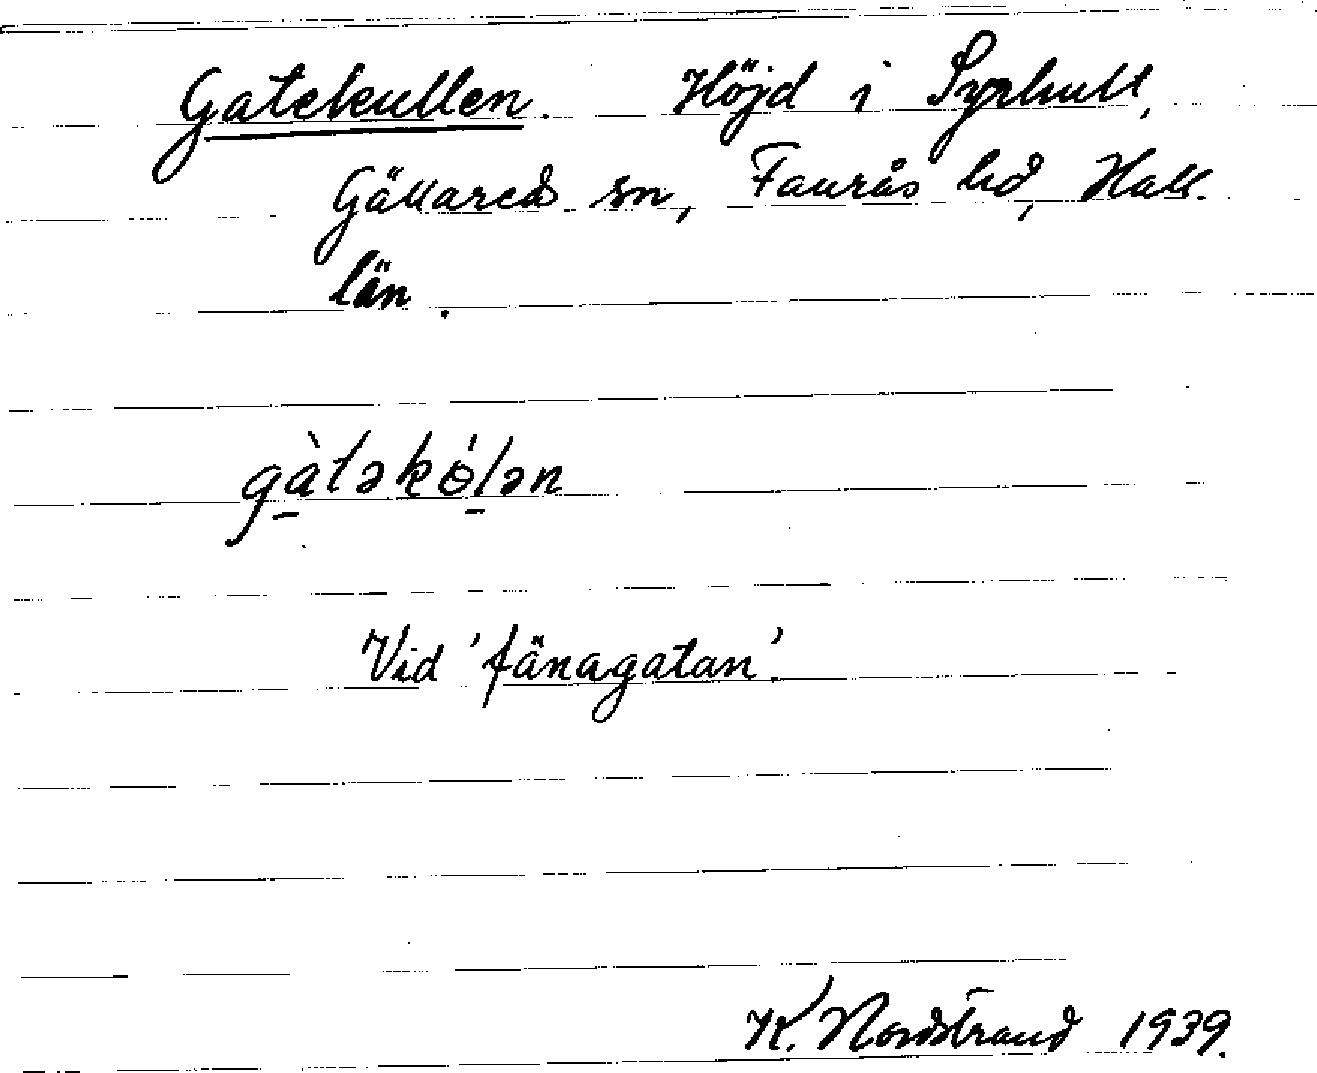 Gatekullen. Höjd i Syrhult,
Gällared sn, Faurås hd, Hall.
län.
gàtəkólən
Vid 'fänagatan'.
K. Nordstrand 1939.